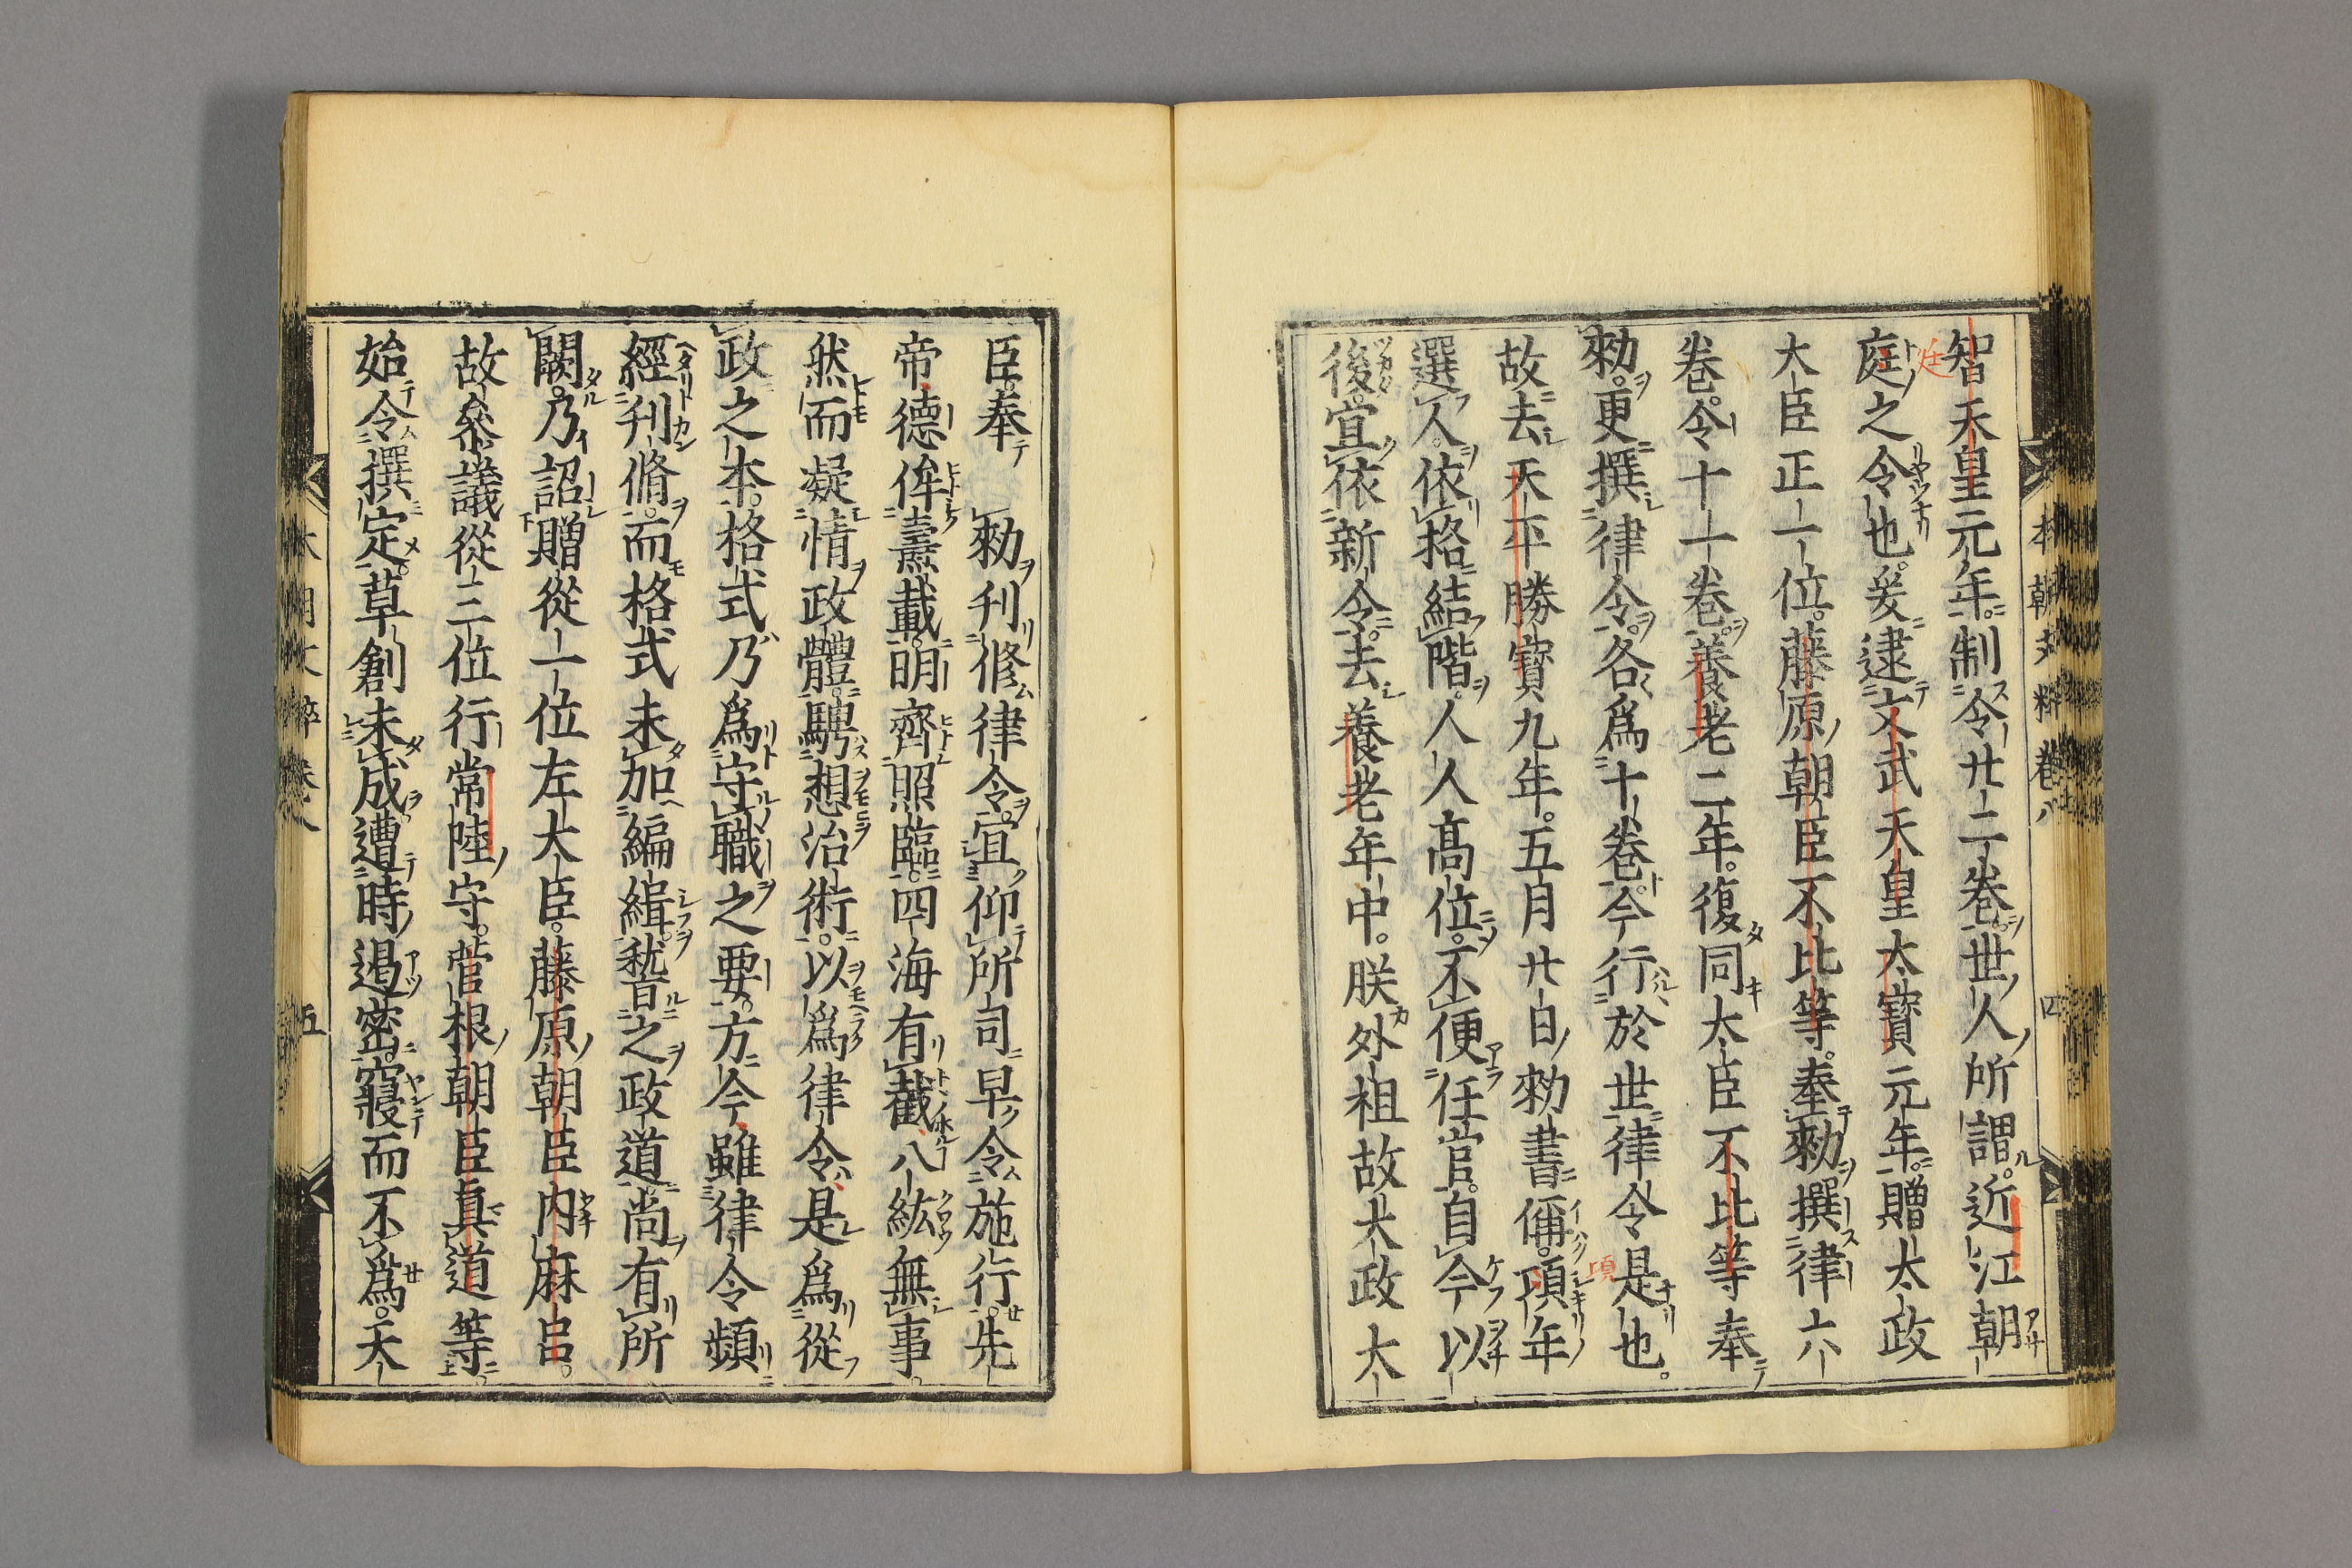 智天皇元年。制令廿二卷。世人所謂。近江朝
庭之令也。爰逮文武天皇太寶元年。贈太政
大臣正一位。藤原朝臣不比等。奉勑撰律六
卷。令十一卷。養老二年。復同太臣不比等奉
勑。更撰律令。各爲十卷。今行於世律令是也。
故去天平勝寶九年。五月廿日勑書偁。項年
選人。依格結階。人人高位。不便任官。自今以
後。宜依新令。去養老年中。朕外祖故太政太
臣。奉勑刋修律令。宜仰所司早令施行。先
帝德侔燾載。明齊照臨。四海有截八紘無事。
然而凝情政體。騁想治術。以爲律令是爲從
政之本。格式乃爲守職之要。方今雖律令頻
經刋脩。而格式未加編緝。愁之政道尚有所
闕。乃詔贈從一位左大臣。藤原朝臣内麻呂。
故參議從三位行常陸守。菅根朝臣真道等
始令撰定。草創未成遭時遏密。寢而不爲。太
本朝文粹卷八
四
五
廷
項